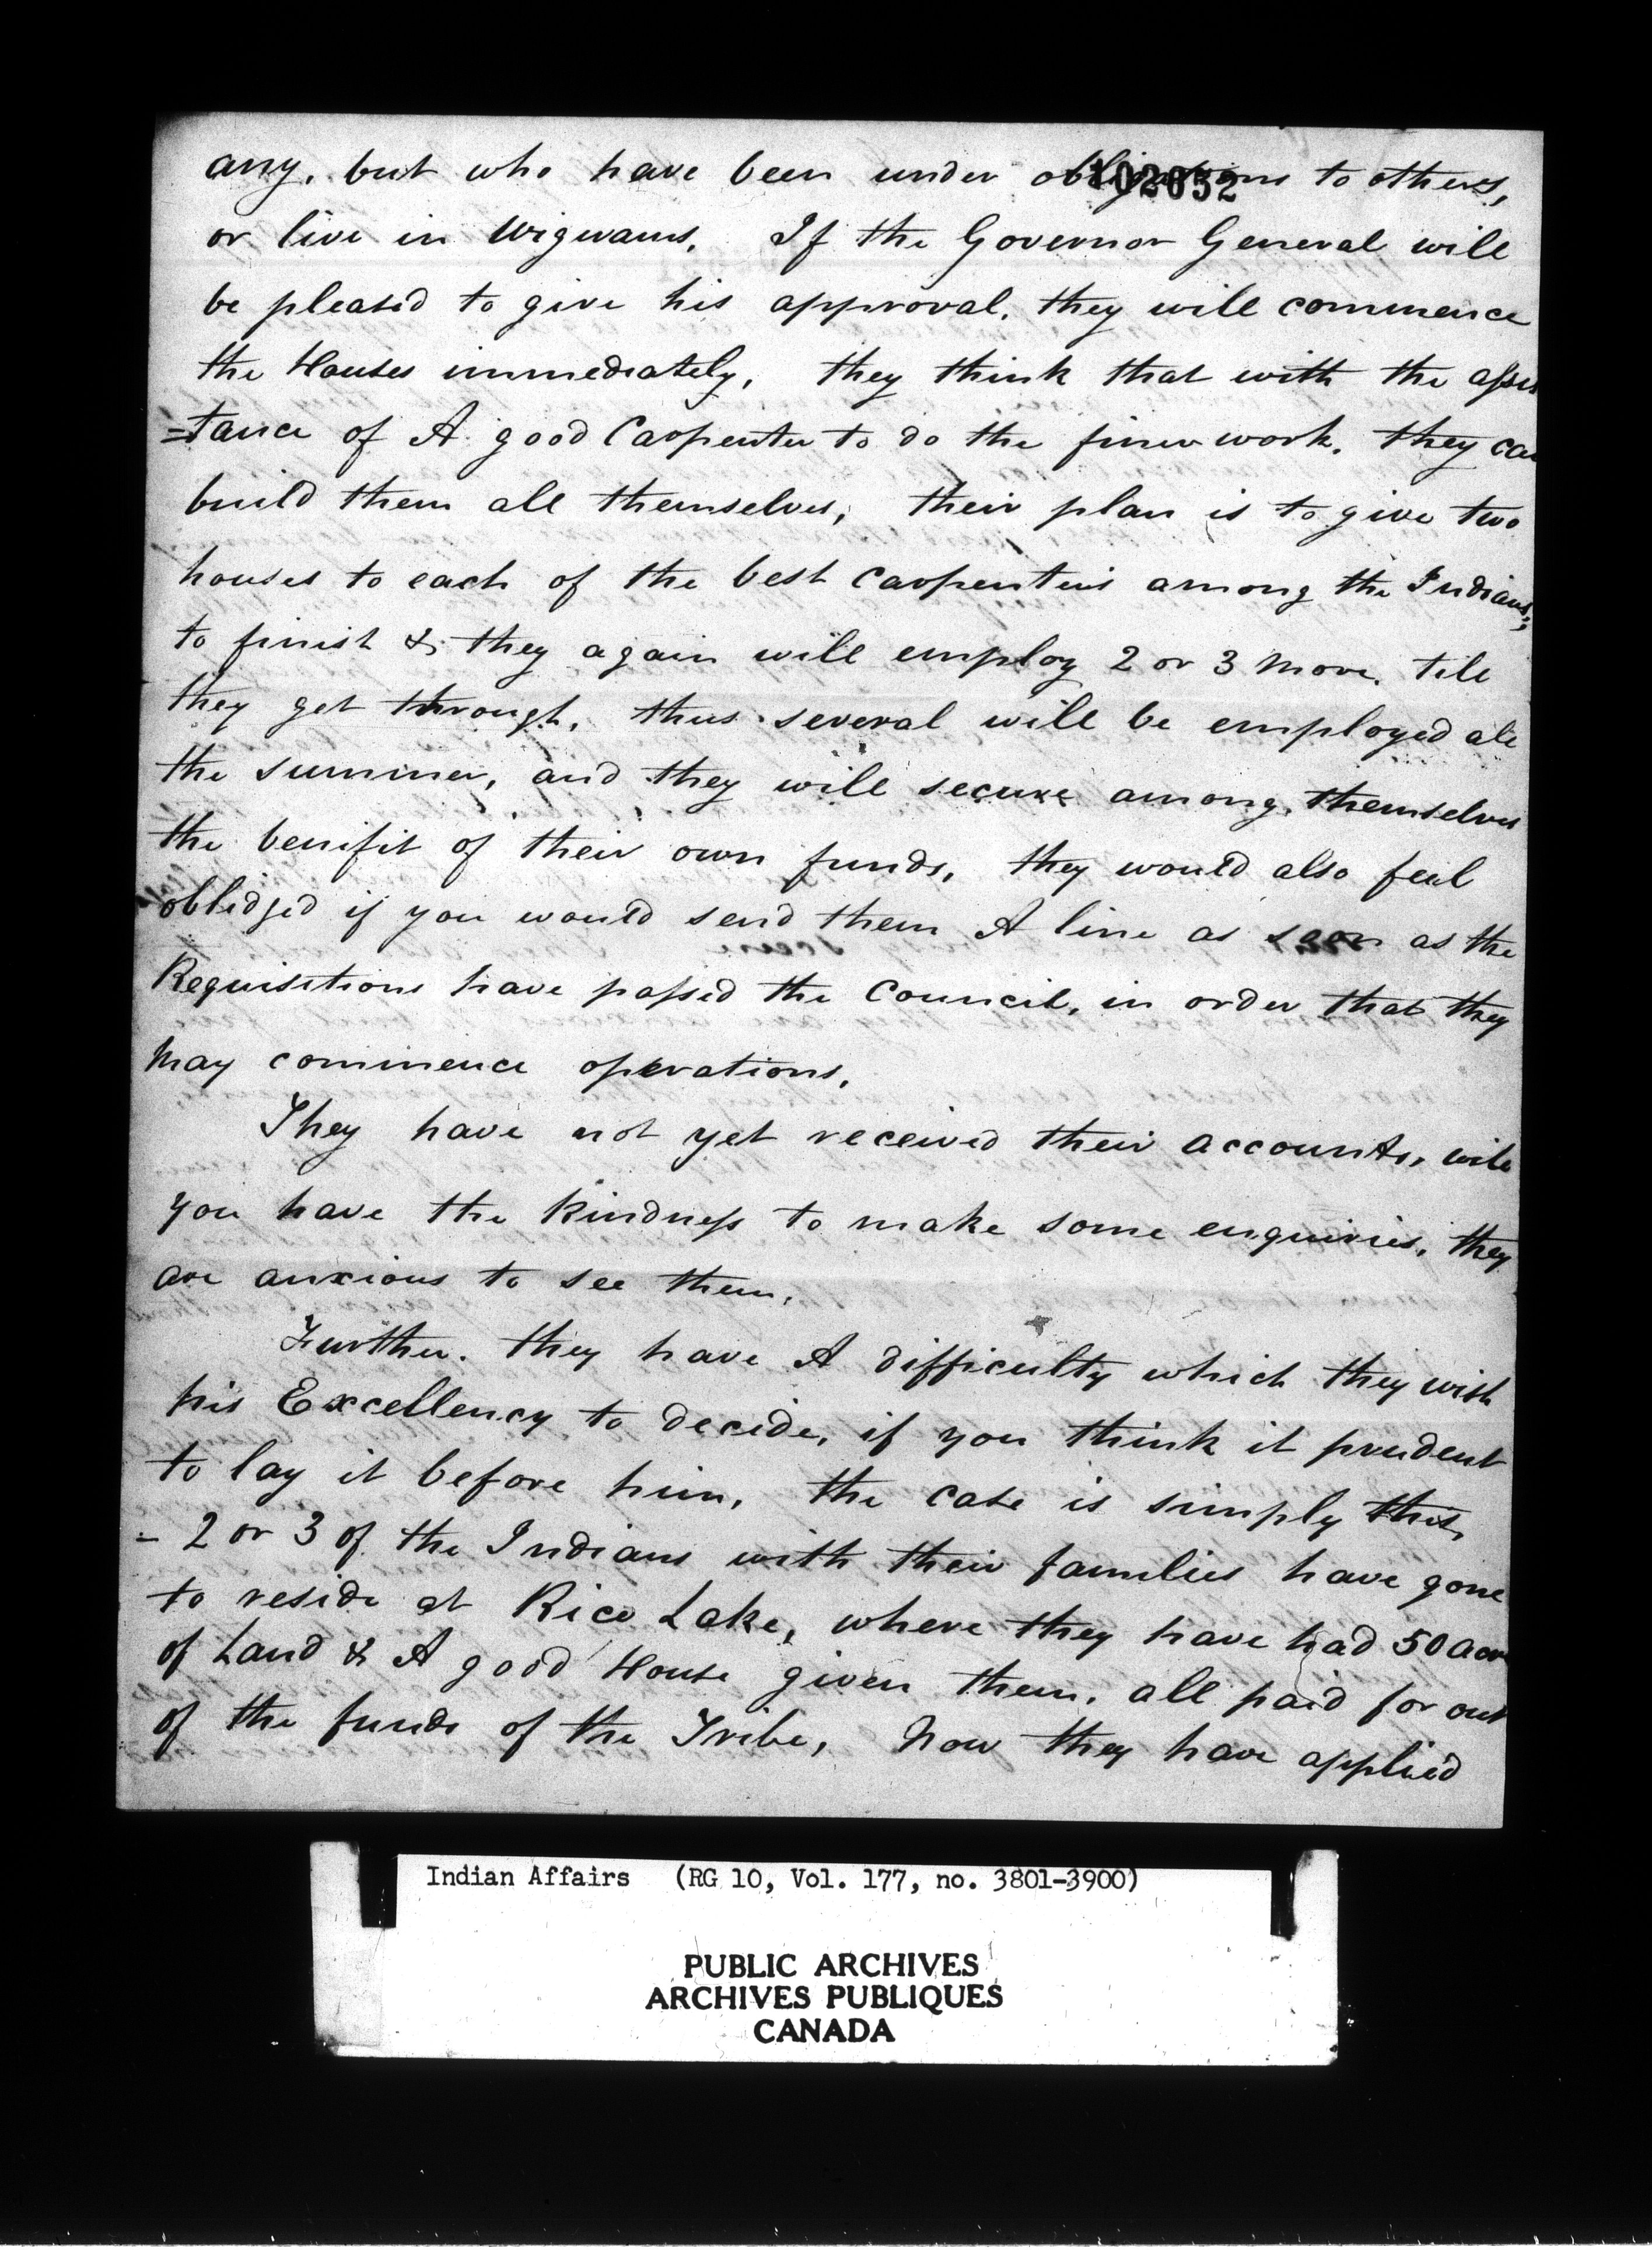 102652
any, but who have been under obligations to others,
or live in Wigwams, If the Governor General will
be pleased to give his approval, they will commence
the Houses immediately, they think that with the assis
=tance of A good Carpenter to do the finer work, they can
build them all themselves, their plan is to give two
houses to each of the best Carpenters among the Indians,
to finish & they again will employ 2 or 3 more, till
they get through, thus several will be employed all
the summer, and they will secure among themselves
the benifit of their own funds, they would also feel
oblidjed if you would send them A line as soon as the
Requisitions have passed the Council, in order that they
may commence operations,
They have not yet received their accounts, will
you have the kindness to make some enquiries, they
are anxious to see them,
Further, they have A difficulty which they wish
his Excellency to decide, if you think it prudent
to lay it before him, the case is simply this,
- 2 or 3 of the Indians with their families have gone
to reside at Rice Lake, where they have had 50 acr
of Land & A good House given them, all paid for out
of the funds of the Tribe, Now they have applied
Indian Affairs (RG 10, Vol. 177, no. 3801-3900)
PUBLIC ARCHIVES
ARCHIVES PUBLIQUES
CANADA